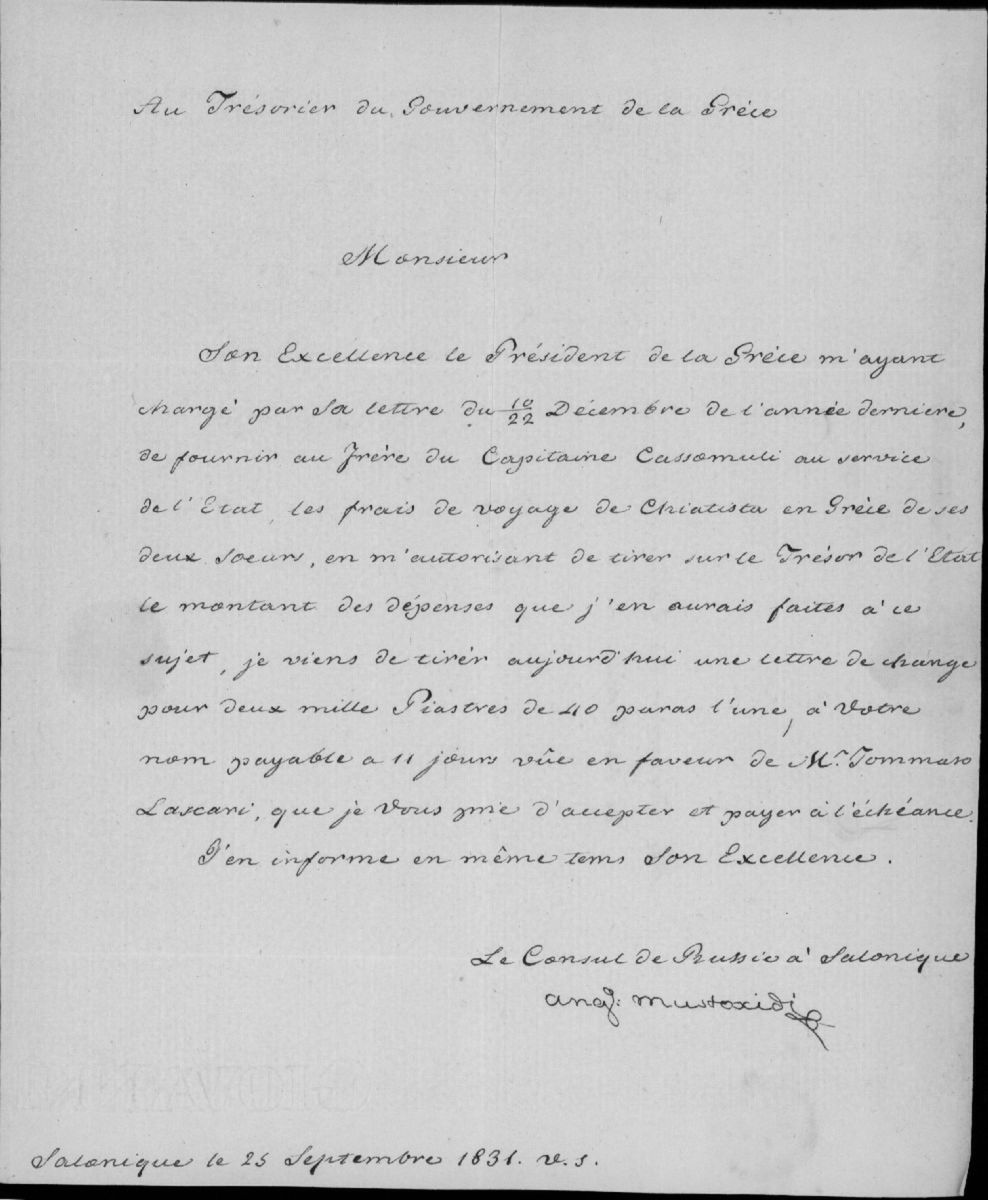 Au Trésorier du Gouvernement de la Grèce
Monsieur
Son Excellence le Président de la Grèce m'ayant
chargé par Sa lettre du 10/22 Décembre de l'année derniere,
de fournir au Frère du Capitaine Cassomuli au service
de l'Etat, les frais de voyage de Chiatista en Grèce de ses
deux Soeurs, en m'autorisant de tirer sur le Trésor de l'Etat
le montant des dépenses que j'en aurais faites à ce
sujet, je viens de tirér aujourd'hui une lettre de change
pour deux mille Piastres de 40 paras l'une, à Votre
nom payable a 11 jours vûe en faveur de Mr. Tommaso
Lascari, que je Vous prie d'accepter et payer à l'échéance.
J'en informe en même tems Son Excellence.
Le Consul de Russie à Salonique
Ang: Mustoxidi
Salonique le 25 Septembre 1831. v.s.